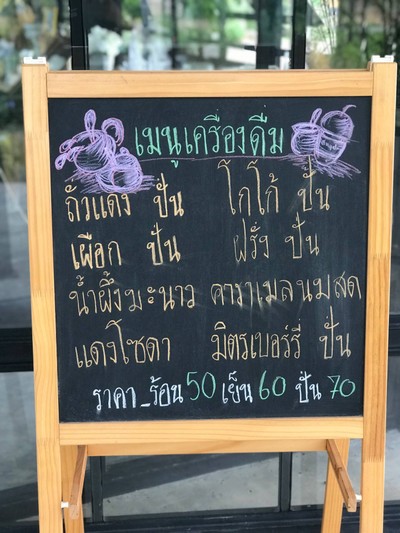 เมนูเครื่องดื่ม
ถั่วแดง ปั่น โกโก้ ปั่น
เผือก ปั่น ฝรั่ง ปั่น
น้ำผึ้งมะนาว คาราเมลนมสด
แดงโซดา มิตรเบอร์รี่ ปั่น
ราคา_ร้อน 50 เย็น 60 ปั่น 70